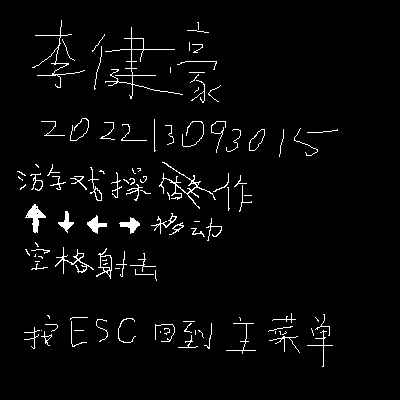 李健豪
202213093015
游戏操作
↑ ↓ ← → 移动
空格射击
按ESC回到主菜单